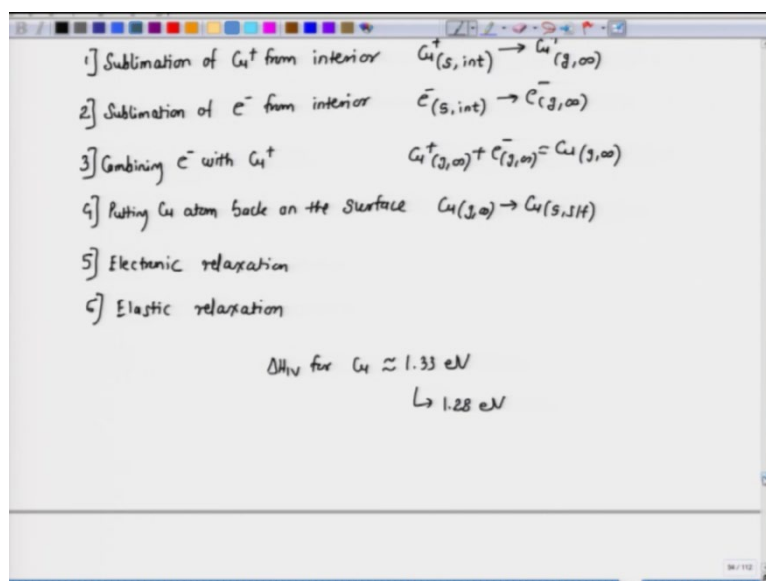 1] Sublimation of Cu⁺ from interior Cu⁺(s, int) → Cu⁺(g,∞)
2] Sublimation of e⁻ from interior e⁻(s, int) → e⁻(g,∞)
3] Combining e⁻ with Cu⁺ Cu⁺(g,∞) + e⁻(g,∞) = Cu(g,∞)
4] Putting Cu atom back on the surface Cu(g,∞) → Cu(s,srf)
5] Electronic relaxation
6] Elastic relaxation
ΔH₁ᵥ for Cu ≈ 1.33 eV
↳ 1.28 eV
94 / 112